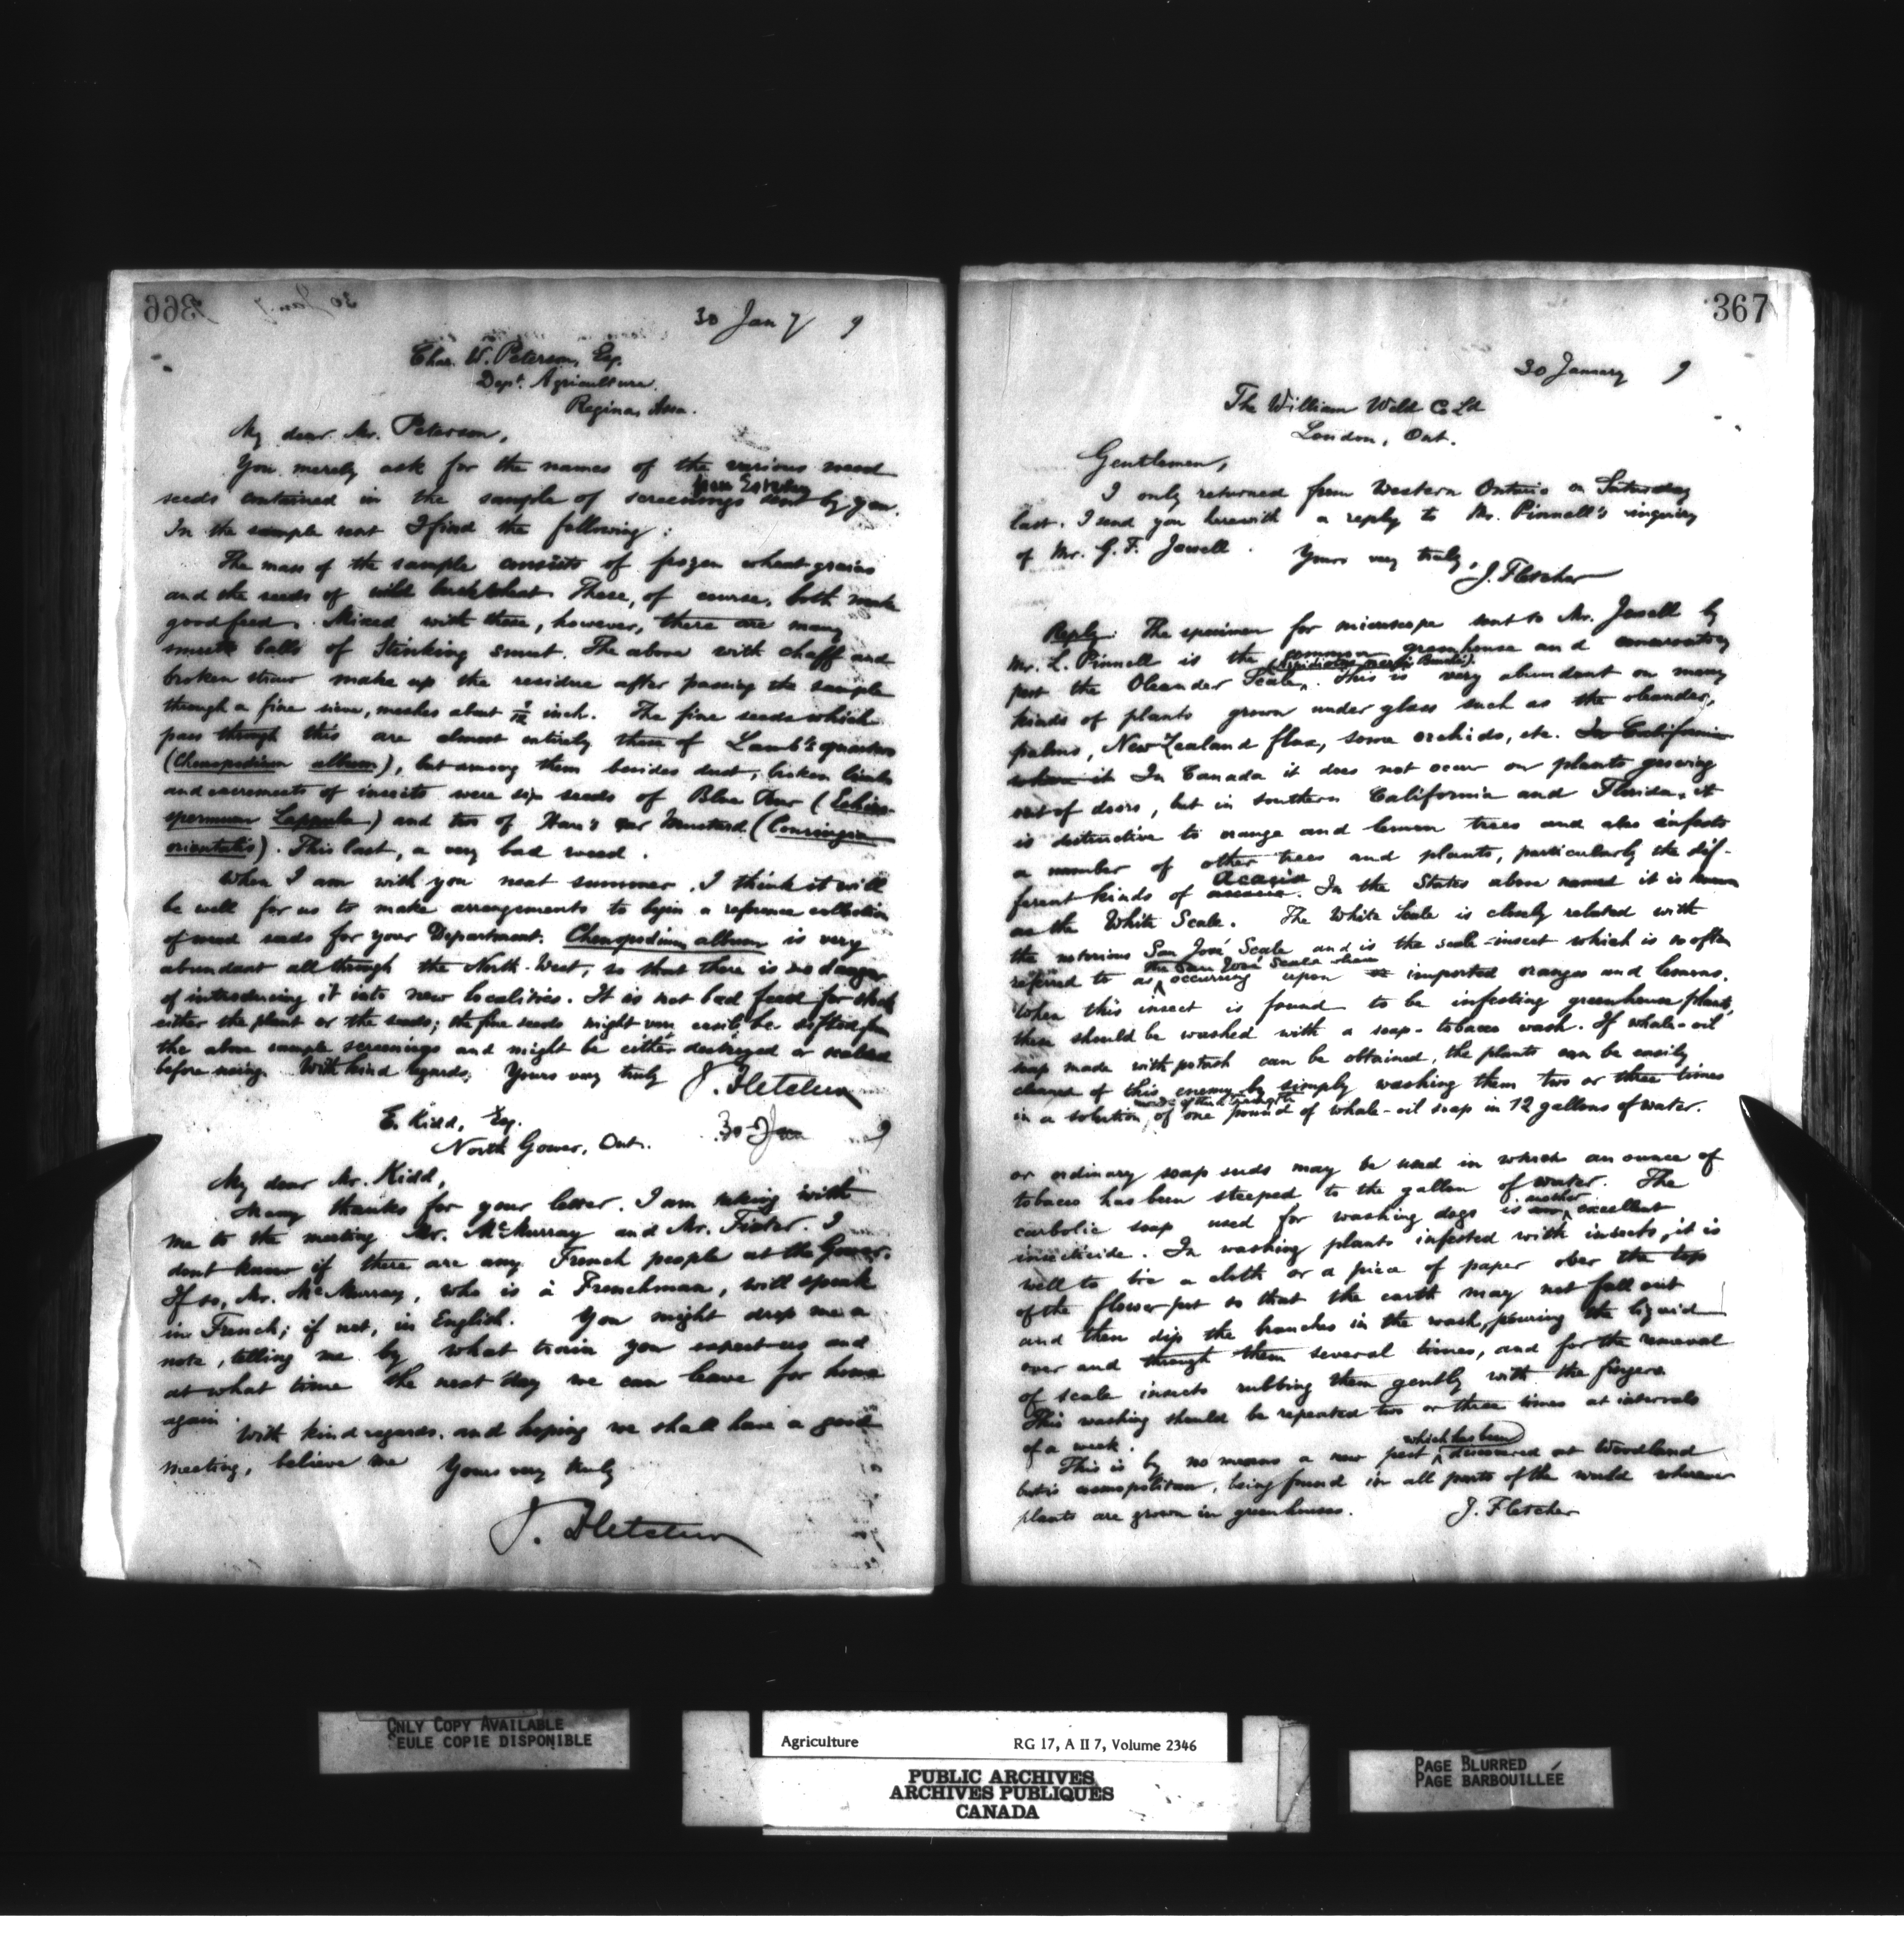 366
30 Jany 9
Chas. W. Peterson, Esq.
Dept. Agriculture.
Regina, Assa.
My dear Mr. Peterson,
You merely ask for the names of the various weed
seeds contained in the sample of screenings sent by you.
In the sample sent I find the following:
The mass of the sample consists of frozen wheat grains
and the seeds of wild buckwheat. These, of course, both make
good feed. Mixed with these, however, there are many
smut balls of Stinking smut. The above with chaff and
broken straw make up the residue after passing the sample
through a fine sieve, meshes about inch. The fine seeds which
pass through this are almost entirely those of Lamb's quarters
(Chenopodium album), but among them besides dust, broken
and excrements of insects were six seeds of Blue Bur (Echino-
spermum Lappula) and two of Hare's ear Mustard (Conringia
orientalis). This last, a very bad weed.
When I am with you next summer, I think it will
be well for us to make arrangements to begin a reference collection
of weed seeds for your Department. Chenopodium album is very
abundant all through the North-West, so that there is no danger
of introducing it into new localities. It is not bad feed for stock
either the plant or the seeds; the fine seeds might very easily be sifted from
the above sample screenings and might be either destroyed or scalded
before using. With kind regards, Yours very truly J. Fletcher
E. Kidd, Esq. 30 Jan 9
North Gower, Ont.
My dear Mr. Kidd,
Many thanks for your letter. I am taking with
me to the meeting Mr. McMurray and Mr. Fixter. I
dont know if there are any French people at the Gower.
If so, Mr. McMurray, who is a Frenchman, will speak
in French; if not, in English. You might drop me a
note, telling me by what train you expect us and
at what time the next day we can leave for home
again
With kind regards, and hoping we shall have a good
meeting, believe me Yours very truly
J. Fletcher
367
30 January 9
The William Weld Co Ld
London, Ont.
Gentlemen,
I only returned from Western Ontario on Saturday
last. I send you herewith a reply to Mr. Pinnell's inquiry
of Mr. G. F. Jewell. Yours very truly,
J. Fletcher
Reply: The specimen for microscope sent to Mr. Jewell by
Mr. L. Pinnell is the common greenhouse and conservatory
pest the Oleander Scale (Aspidiotus nerii Bouché). This is very abundant on many
kinds of plants grown under glass such as the oleander,
palms, New Zealand flax, some orchids, etc. In California
where it In Canada it does not occur on plants growing
out of doors, but in southern California and Florida, it
is destructive to orange and lemon trees and also infests
a number of other trees and plants, particularly the dif-
ferent kinds of Acacia. In the States above named it is known
as the White Scale. The White Scale is closely related with
the notorious San José Scale and is the scale-insect which is so often
referred to as the San José Scale when occurring upon imported oranges and lemons.
When this insect is found to be infesting greenhouse plants,
these should be washed with a soap-tobacco wash. If whale-oil
soap made with potash can be obtained, the plants can be easily
cleaned of this enemy by simply washing them two or three times
in a solution made of the strength of one pound of whale-oil soap in 12 gallons of water.
or ordinary soap suds may be used in which an ounce of
tobacco has been steeped to the gallon of water. The
carbolic soap used for washing dogs is another excellent
insecticide. In washing plants infested with insects, it is
well to tie a cloth or a piece of paper over the top
of the flower pot so that the earth may not fall out
and then dip the branches in the wash, pouring the liquid
over and through them several times, and for the removal
of scale insects rubbing them gently with the fingers
This washing should be repeated two or three times at intervals
of a week.
This is by no means a new pest which has been discovered at Woodland
but is cosmopolitan, being found in all parts of the world wherever
plants are grown in greenhouses. J. Fletcher
ONLY COPY AVAILABLE
SEULE COPIE DISPONIBLE
Agriculture RG 17, A II 7, Volume 2346
PUBLIC ARCHIVES
ARCHIVES PUBLIQUES
CANADA
PAGE BLURRED
PAGE BARBOUILLÉE